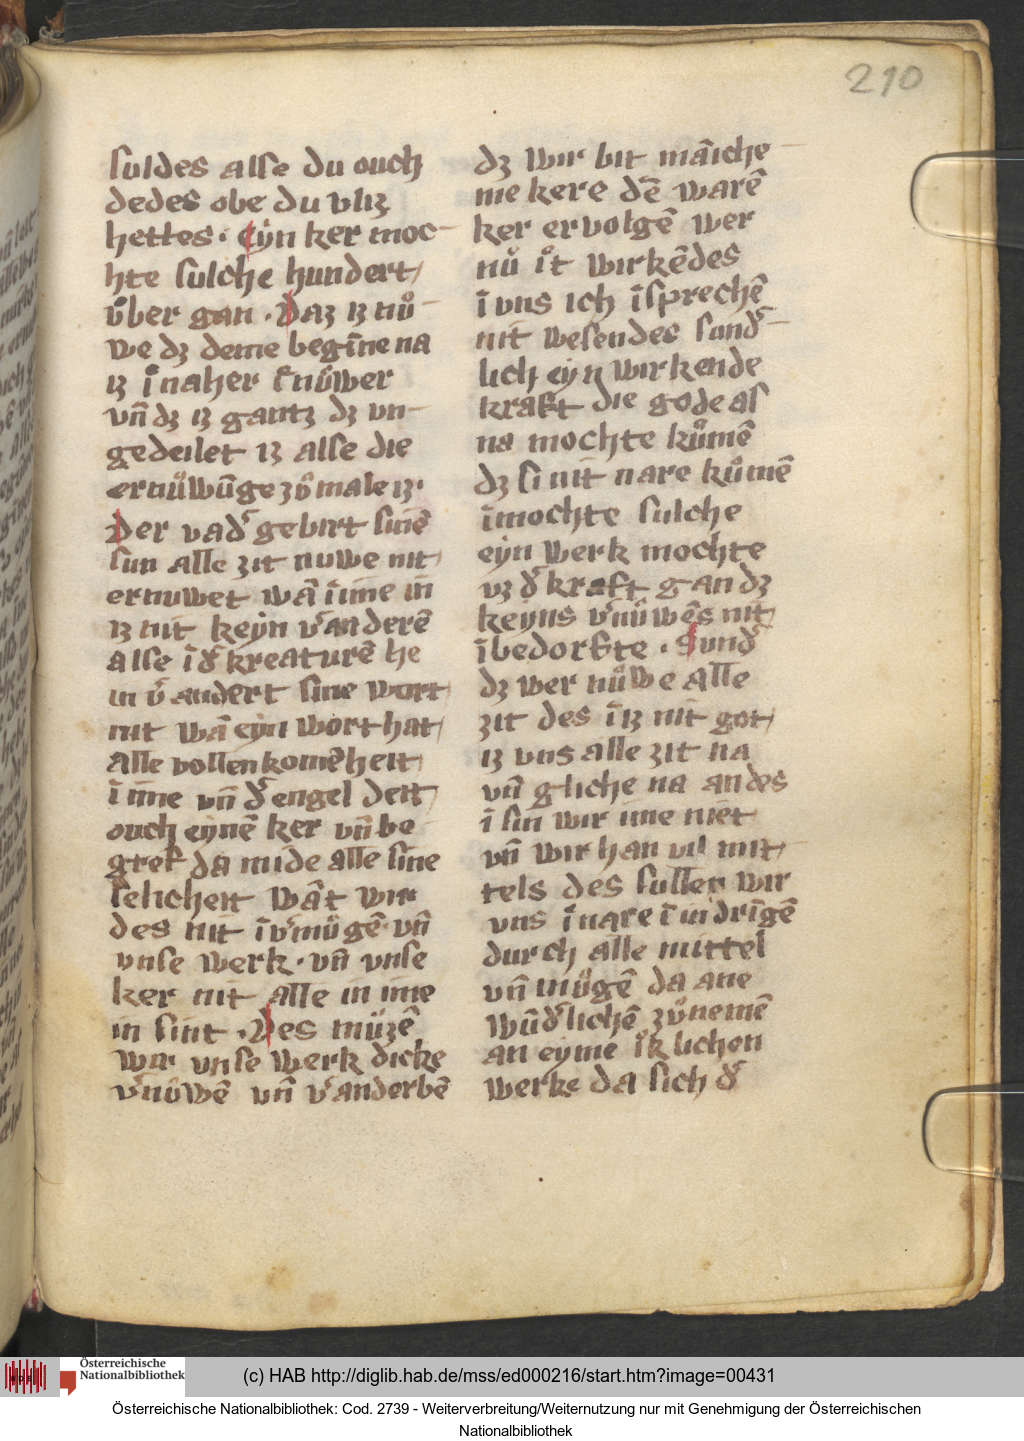 210
suldes alse du ouch
dedes obe du vliz
hettes · Eyn ker moc-
hte sulche hundert
ůber gan · Daz iz nů-
we dz deme begīne na
iz ī naher ernůwer
vn̄ dz iz gantz dz vn-
gedeilet iz alse die
ernůwūge zůmale iz ·
Der vad' gebirt sinē
sun alle zit nuwe nit
ernuwet wā īime in
iz nit keyn v'anderē
alse ī d' kreaturē he
in v'andert sine wort
nit wā eyn wort hat
alle vollenkomēheit
ī ime vn̄ d' engel deit
ouch eynē ker vn̄ be
gref da mide alle sine
selicheit wāt wir
des nit ī v'můgē vn̄
vnse werk · vn̄ vnse
ker nit alle in ime
in sint · Des můzē
wir vnse werk dicke
v'nůwē vn̄ v'anderbē
dz wir bit māiche-
me kere dē warē
ker ervolgē wer
nů īt wirkēdes
ī vns ich īsprechē
nit wesendes sund'-
lich eyn wirkende
kraft die gode als
na mochte kůmē
dz si nit nare kůmē
īmochte sulche
eyn werk mochte
vz d' kraft gan dz
keyns v'nůwēs nit
ībedorfte · Sund'
dz wer nůwe alle
zit des īiz nit got
iz vns alle zit na
vn̄ gliche na andes
ī sin wir ime niet
vn̄ wir han vil mit-
tels des sullen wir
vns ī nare ī indrīgē
durch alle mittel
vn̄ můgē da ane
wūd'lichē zůnemē
an eyme iklichen
werke da sich d'
Österreichische
Nationalbibliothek
(c) HAB http://diglib.hab.de/mss/ed000216/start.htm?image=00431
Österreichische Nationalbibliothek: Cod. 2739 - Weiterverbreitung/Weiternutzung nur mit Genehmigung der Österreichischen
Nationalbibliothek